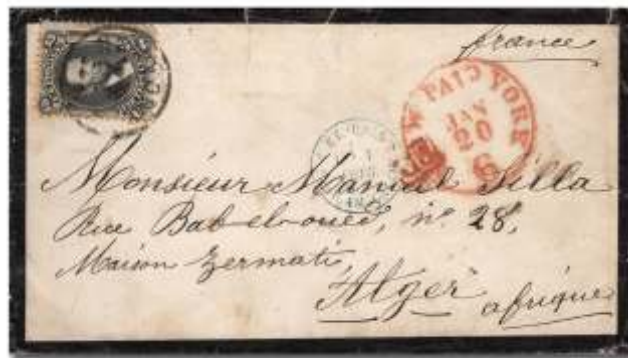 france
NEW PAID YORK
JAN
20
6
Monsieur Manuel Silla
Rue Bab-el-oued, nº 28,
Maison Zermati,
Alger
afrique